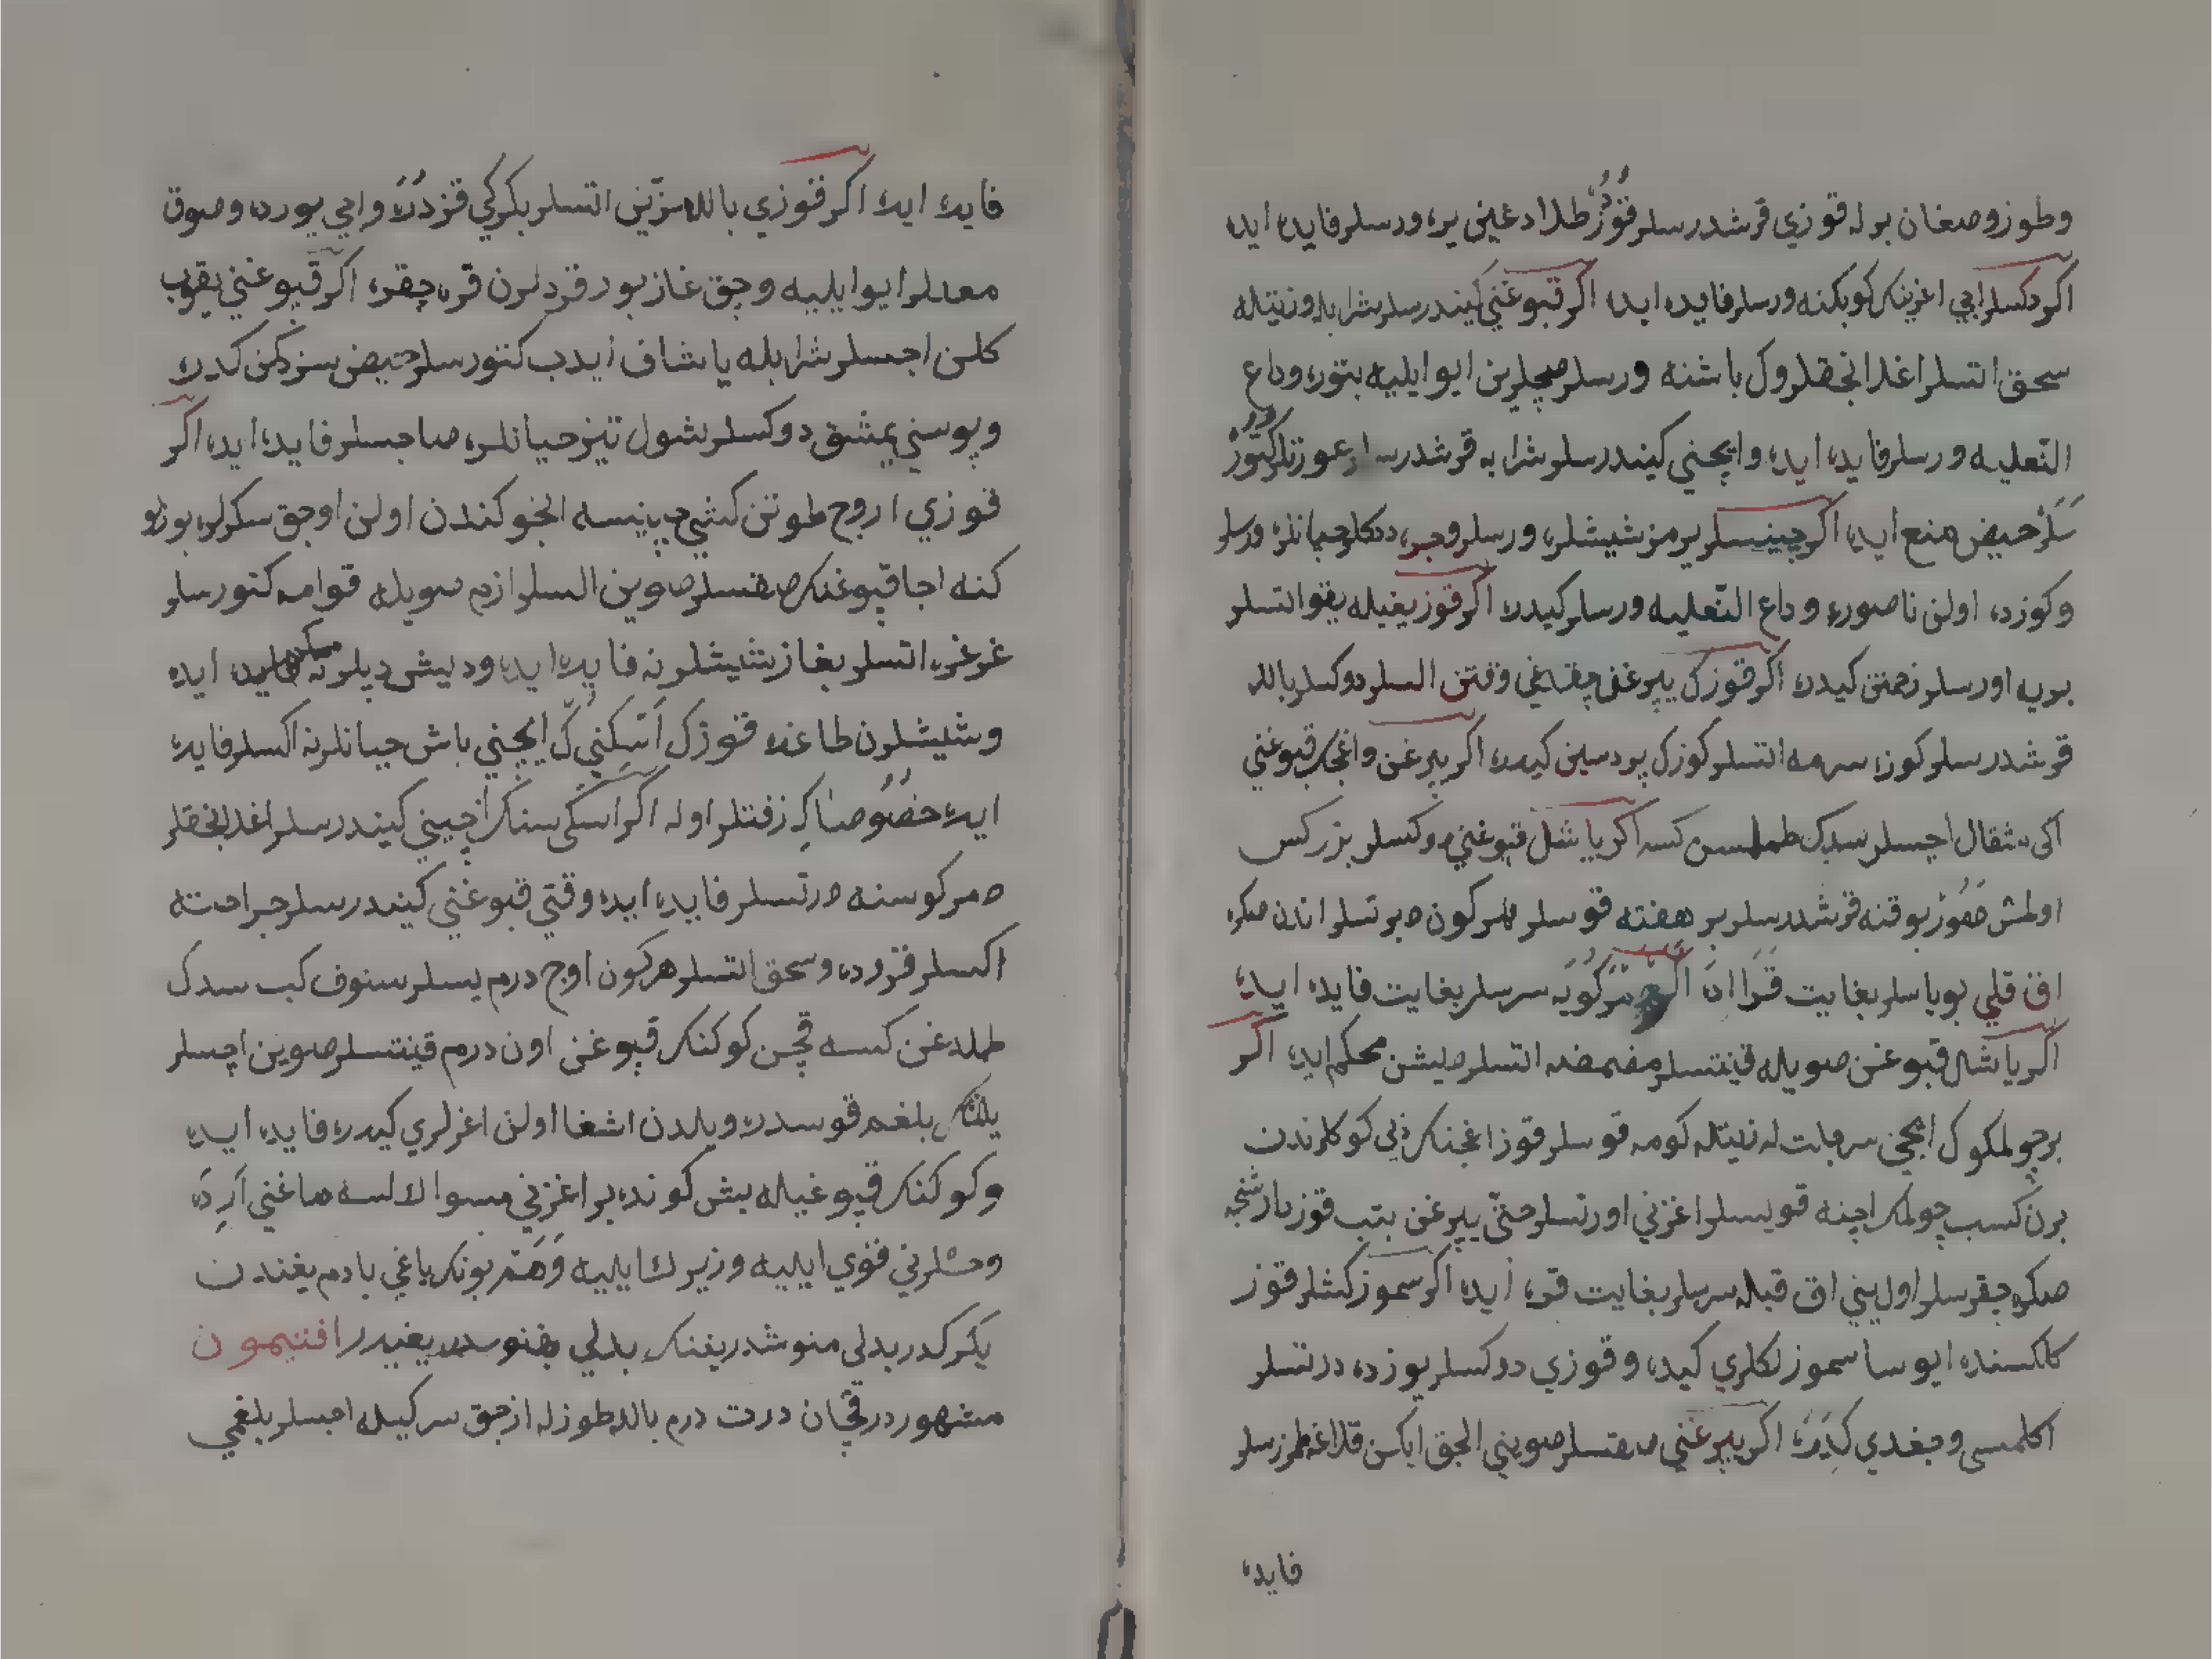 وطوز وصغان برله قوزي قرشدرسلر قودز طلادغين يره ورسلر فايده ايده
اكر دكسلر اجي اغزينك كوبكنه ورسلر فايده ايده اكر قبوغني كيندرسلر شرابله وزيتله
سحق اتسلر اغلانجقلروك باشنه ورسلر صچلرين ايو ايليه بتوره وداع
الثعلبه ورسلر فايده ايده وايچني كيندرسلر شرابه قرشدرسلر عورتلر كتور
سلر حيض منع ايده اكر چينسلر يرمز شيشلره ورسلر وجره دكلر چبانلره ورسلر
وكوزده اولن ناصوره وداع الثعلبه ورسلر كيدره اكر قوز يغيله يقو اتسلر
بريه اورسلر زحمتن كيدره اكر قوزك يپرغني چقدغي وقتن السلر دوكسلر بالله
قرشدرسلر كوزه سرمه اتسلر كوزك پردسين كيدره اكر يپرغن واغجك قبوغني
اكى مثقال اچسلر سدك طملمسن كسه اكر ياشل قبوغني دوكسلر بزركس
اولمش دمور بوقنه قرشدرسلر بر هفته قوسلر هر كون قبرتسلر اندن صكره
اق قلي بوياسلر بغايت قرا اده اكر مركويه سرسلر بغايت فايده ايده
اكر ياشل قبوغن صويله قينتسلر مضمضه اتسلر ديشن محكم ايده اكر
بر چولمكوك ايچن سرجلت له زيتله كومه قوسلر قوز اغجنك دبي كوكلرندن
برن كسب چولمك اچنه قويسلر اغزني اورتسلر حتى يپرغن بتب قوز
صكره چقرسلر اول يني اق قبله سرسلر بغايت قره ايده اكر سموز كشلر قوز
كلكسنده ايوسا سموزلكلري كيده وقوزي دوكسلر يوزده درتسلر
اكلمسى وجغدي كدره اكر يپرغني صقسلر صويني الجق ايكن قلاغه طمزسلر
فايده
فايده ايده اكر قوزي بالله مزين اتسلر بكركي قزدره واجي يوره وصوق
معدلرا ايو ايليه وچق غازبور قردلرن قره چقره اكر قبوغني يقوب
كلن اچسلر شرابله يا شاف ايدب كتورسلر حيض سز كن كدره
وپوسني يمشق دوكسلر شول تيز حيانلره صاچسلر فايده ايده اكر
قوزي اروج طوتن كشي چينسه انجو كندن اولن اوچق سكرلره بوزلو
كنه اجا قبوغنك صقسلر صوين السلر ازم سويله قوامه كتورسلر
غرغره اتسلر بغاز شيشلرنه فايده ايده وديش ديلرنه فايده ايده
وشيشلرن طاغده قوزك اسكنيك ايچني باش چبانلرنه اكسلر فايده
ايده خصوصا كه زفتلر اوله اكر اسكى سنك اچيني كيندرسلر اغلانجقلر
مركوسنه درتسلر فايده ايده وقتي قبوغني كيندرسلر جراحته
اكسلر قروده وسحق اتسلر هر كون اوج درم يسلر سنوف كب سدك
طملدغن كسه قچن كوكنك قبوغن اون درم قينتسلر صوين اچسلر
يلفنك بلغم قوسدره ويلدن اشغا اولن اغزلري كيدره فايده ايده
وكوكنك قبوغيله بش كونده بر اغزني مسوا لانسه دماغني ارده
وحسلرني قوي ايليه وزيرك ايليه وهم بونك ياغي بادم يغندن
يكركدر بدلى منوشدر يغنك بدلي يغيدر افتيمون
مشهوردر قچان درت درم بالله طوزله ازجق سركيله اچسلر بلغمي